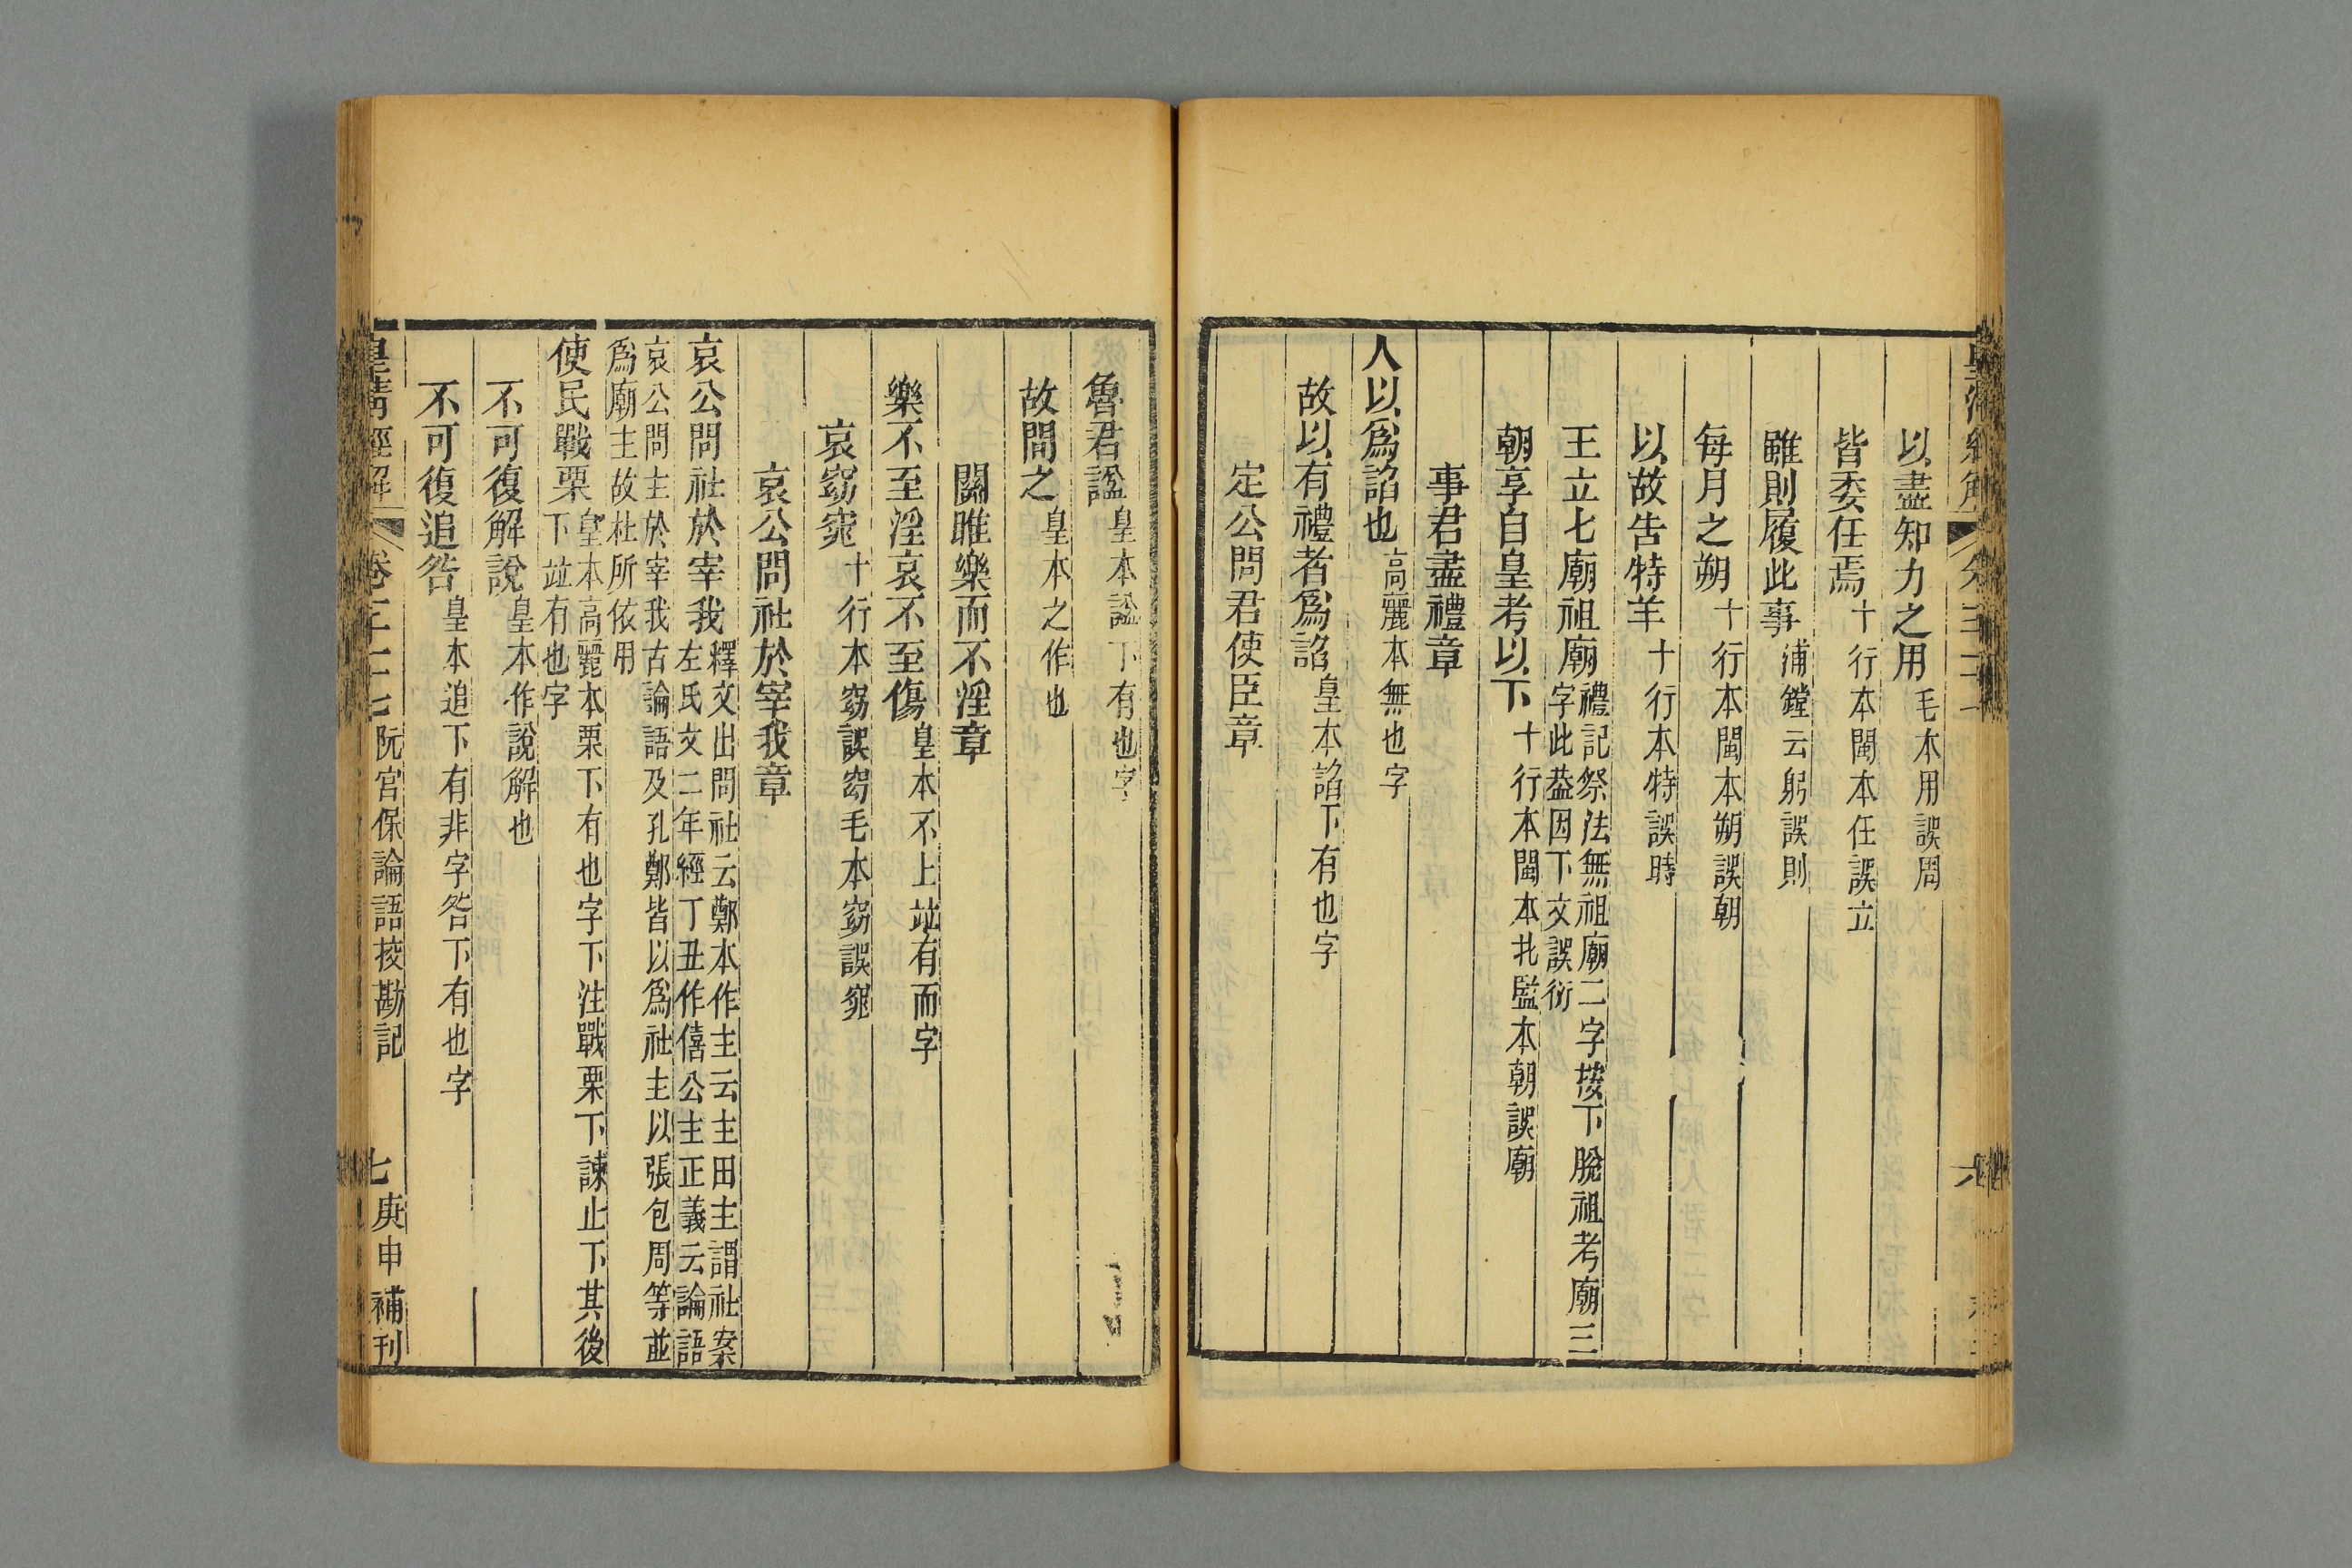 以盡知力之用毛本用誤周
皆委任焉十行本閩本任誤立
雖則履此事浦鏜云躬誤則
每月之朔十行本閩本朔誤朝
以故告特羊十行本特誤時
王立七廟祖廟禮記祭法無祖廟二字按下脫祖考廟三
字此葢因下文誤衍
朝享自皇考以下十行本閩本北監本朝誤廟
事君盡禮章
人以爲諂也高麗本無也字
故以有禮者爲諂皇本諂下有也字
定公問君使臣章
魯君謚皇本謚下有也字
故問之皇本之作也
關雎樂而不淫章
樂不至淫哀不至傷皇本不上竝有而字
哀窈窕十行本窈誤窈毛本窈誤窕
哀公問社於宰我章
哀公問社於宰我釋文出問社云鄭本作主云主田主謂社案
左氏文二年經丁丑作僖公主正義云論語
哀公問主於宰我古論語及孔鄭皆以爲社主以張包周等並
爲廟主故杜所依用
使民戰栗皇本高麗本栗下有也字下注戰栗下諫止下其後
下竝有也字
不可復解說皇本作說解也
不可復追咎皇本追下有非字咎下有也字
皇清經解 卷一千十七 阮宮保論語挍勘記 七 庚申補刊